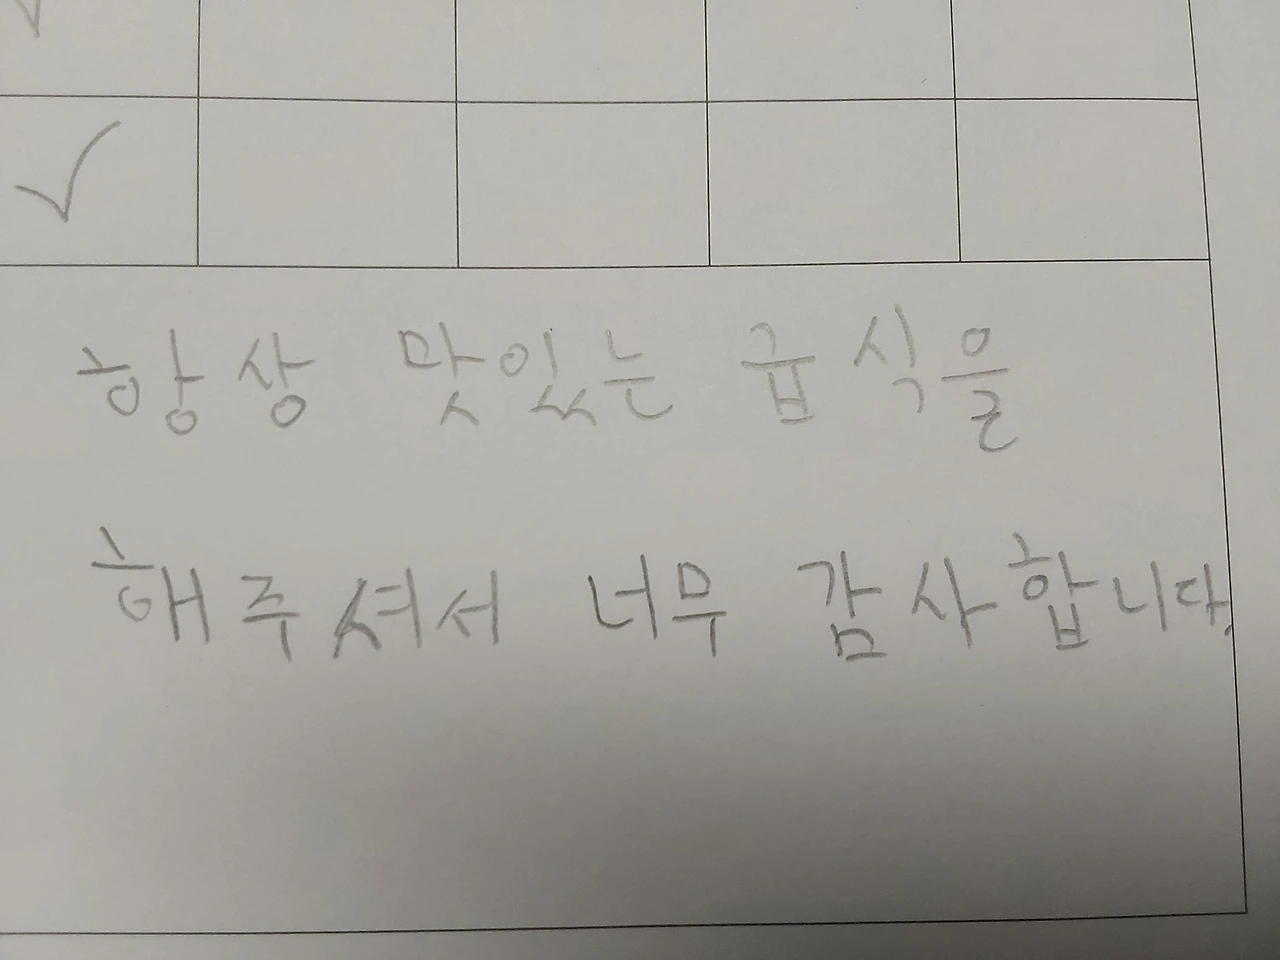 항상 맛있는 급식을
해주셔서 너무 감사합니다.